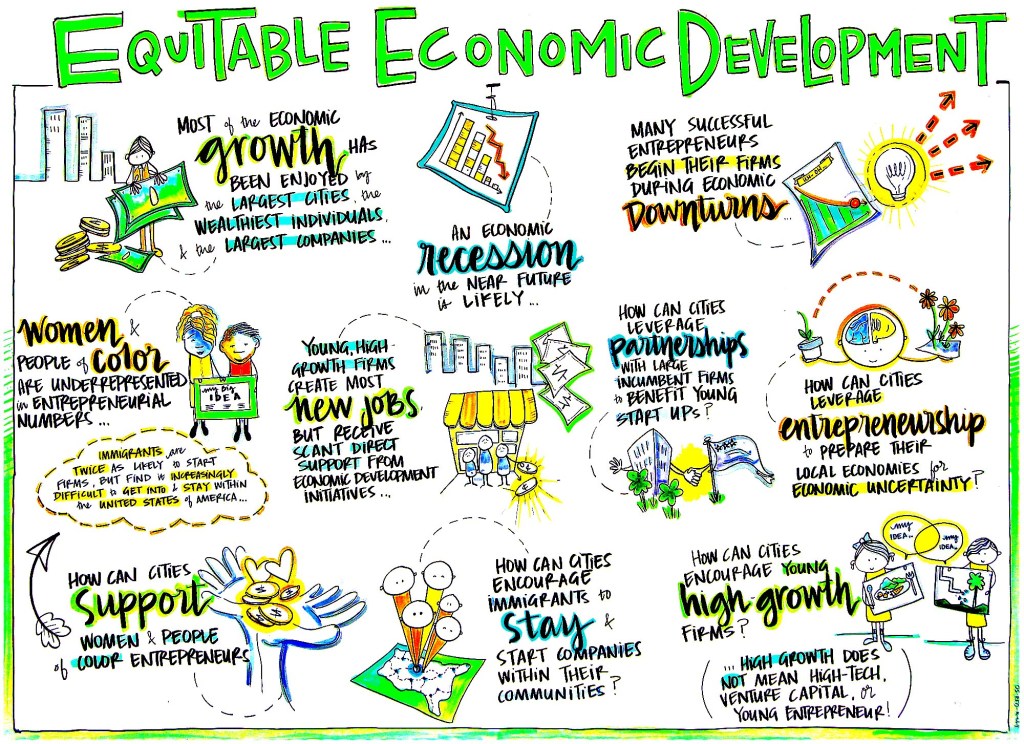 EQUITABLE ECONOMIC DEVELOPMENT
MOST of the ECONOMIC
growth HAS
BEEN ENJOYED by
the LARGEST CITIES, the
WEALTHIEST INDIVIDUALS,
& the LARGEST COMPANIES...
AN ECONOMIC
recession
in the NEAR FUTURE
is LIKELY...
MANY SUCCESSFUL
ENTREPRENEURS
BEGIN THEIR FIRMS
DURING ECONOMIC
DOWNTURNS...
WOMEN &
PEOPLE of COLOR
ARE UNDERREPRESENTED
in ENTREPRENEURIAL
NUMBERS...
my big
IDEA
IMMIGRANTS are
TWICE AS LIKELY to START
FIRMS, BUT FIND it INCREASINGLY
DIFFICULT to GET INTO & STAY WITHIN
the UNITED STATES of AMERICA...
YOUNG, HIGH-
GROWTH FIRMS
CREATE MOST
NEW JOBS,
BUT RECEIVE
SCANT DIRECT
SUPPORT FROM
ECONOMIC DEVELOPMENT
INITIATIVES...
HOW CAN CITIES
LEVERAGE
partnerships
WITH LARGE
INCUMBENT FIRMS
to BENEFIT YOUNG
START UPs?
HOW CAN CITIES
LEVERAGE
entrepreneurship
to PREPARE THEIR
LOCAL ECONOMIES for
ECONOMIC UNCERTAINTY?
HOW CAN CITIES
support
WOMEN & PEOPLE
of COLOR ENTREPRENEURS
HOW CAN CITIES
ENCOURAGE
IMMIGRANTS to
stay &
START COMPANIES
WITHIN THEIR
COMMUNITIES?
HOW CAN CITIES
ENCOURAGE YOUNG
high-growth
FIRMS?
my
IDEA...
my
IDEA...
... HIGH GROWTH DOES
NOT MEAN HIGH-TECH,
VENTURE CAPITAL, or
YOUNG ENTREPRENEUR!